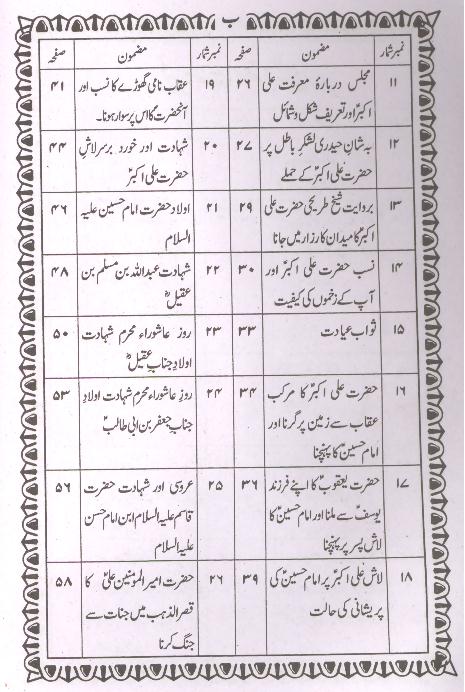 ب
نمبر شمار مضمون صفحہ
۱۱ مجلس دربارۂ معرفت علی ۲۶
اکبرؑ اور تعریف شکل و شمائل
۱۲ بہ شانِ حیدری لشکرِ باطل پر ۲۷
حضرت علی اکبرؑ کے حملے
۱۳ بروایت شیخ طریحی حضرت علی ۲۹
اکبرؑ کا میدان کارزار میں جانا
۱۴ نسب حضرت علی اکبرؑ اور ۳۰
آپ کے زخموں کی کیفیت
۱۵ ثواب عیادت ۳۳
۱۶ حضرت علی اکبرؑ کا مرکب ۳۴
عقاب سے زمین پر گرنا اور
امام حسینؑ کا پہنچنا
۱۷ حضرت یعقوبؑ کا اپنے فرزند ۳۶
یوسفؑ سے ملنا اور امام حسینؑ کا
لاش پسر پر پہنچنا
۱۸ لاش علی اکبرؑ پر امام حسینؑ کی ۳۹
پریشانی کی حالت
نمبر شمار مضمون صفحہ
۱۹ عقاب نامی گھوڑے کا نسب اور ۴۱
آنحضرتؐ کا اس پر سوار ہونا۔
۲۰ شہادت اور خورد برسرلاشِ ۴۴
حضرت علی اکبرؑ
۲۱ اولاد حضرت امام حسین علیہ ۴۶
السلام
۲۲ شہادت عبداللہ بن مسلم بن ۴۸
عقیلؓ
۲۳ روز عاشوراء محرم شہادت ۵۰
اولادِ جناب عقیلؓ
۲۴ روزِ عاشوراء محرم شہادت اولادِ ۵۳
جنابِ جعفر بن ابی طالبؑ
۲۵ عروسی اور شہادت حضرت ۵۶
قاسم علیہ السلام ابن امام حسن
علیہ السلام
۲۶ حضرت امیر المومنین علیؑ کا ۵۸
قصر الذہب میں جنات سے
جنگ کرنا